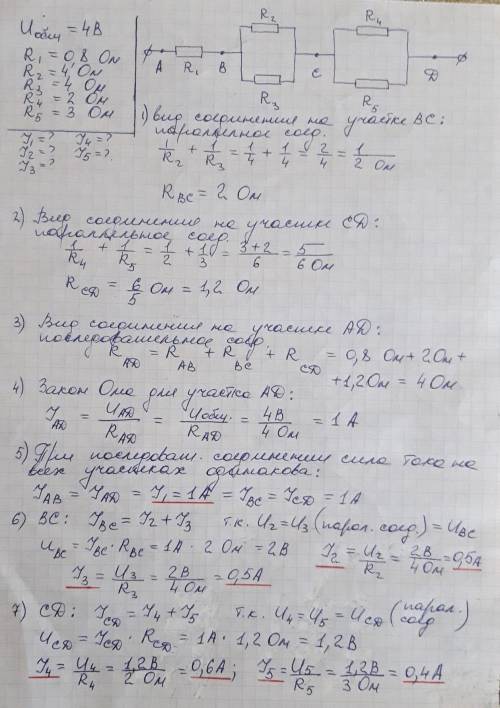 Uобщ = 4В
R₁ = 0,8 Ом
R₂ = 4 Ом
R₃ = 4 Ом
R₄ = 2 Ом
R₅ = 3 Ом
I₁ = ? I₄ = ?
I₂ = ? I₅ = ?
I₃ = ?
R₂ R₄
A R₁ B C D
R₃ R₅
1) Вид соединения на участке BC:
параллельное соед.
1/R₂ + 1/R₃ = 1/4 + 1/4 = 2/4 = 1/2 Ом
R_BC = 2 Ом
2) Вид соединения на участке CD:
параллельное соед.
1/R₄ + 1/R₅ = 1/2 + 1/3 = (3+2)/6 = 5/6 Ом
R_CD = 6/5 Ом = 1,2 Ом
3) Вид соединения на участке AD:
последовательное соед.
R_AD = R_AB + R_BC + R_CD = 0,8 Ом + 2 Ом +
+ 1,2 Ом = 4 Ом
4) Закон Ома для участка AD:
I_AD = U_AD/R_AD = Uобщ./R_AD = 4В/4 Ом = 1 А
5) При последоват. соединении сила тока на
всех участках одинакова:
I_AB = I_AD = I₁ = 1А = I_BC = I_CD = 1А
6) BC: I_BC = I₂ + I₃ т.к. U₂ = U₃ (парал. соед.) = U_BC
U_BC = I_BC · R_BC = 1А · 2 Ом = 2В I₂ = U₂/R₂ = 2В/4 Ом = 0,5А
I₃ = U₃/R₃ = 2В/4 Ом = 0,5А
7) CD: I_CD = I₄ + I₅ т.к. U₄ = U₅ = U_CD (парал. соед)
U_CD = I_CD · R_CD = 1А · 1,2 Ом = 1,2В
I₄ = U₄/R₄ = 1,2В/2 Ом = 0,6А; I₅ = U₅/R₅ = 1,2В/3 Ом = 0,4А